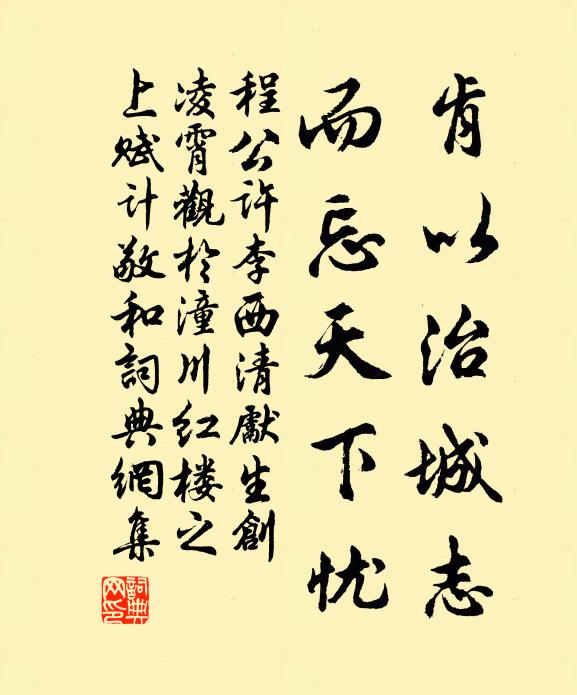 肯以治城志
而忘天下忧
程公许李西清獻生創
凌霄觀於潼川红楼之
上赋计敬和詞典網集
詞典网印